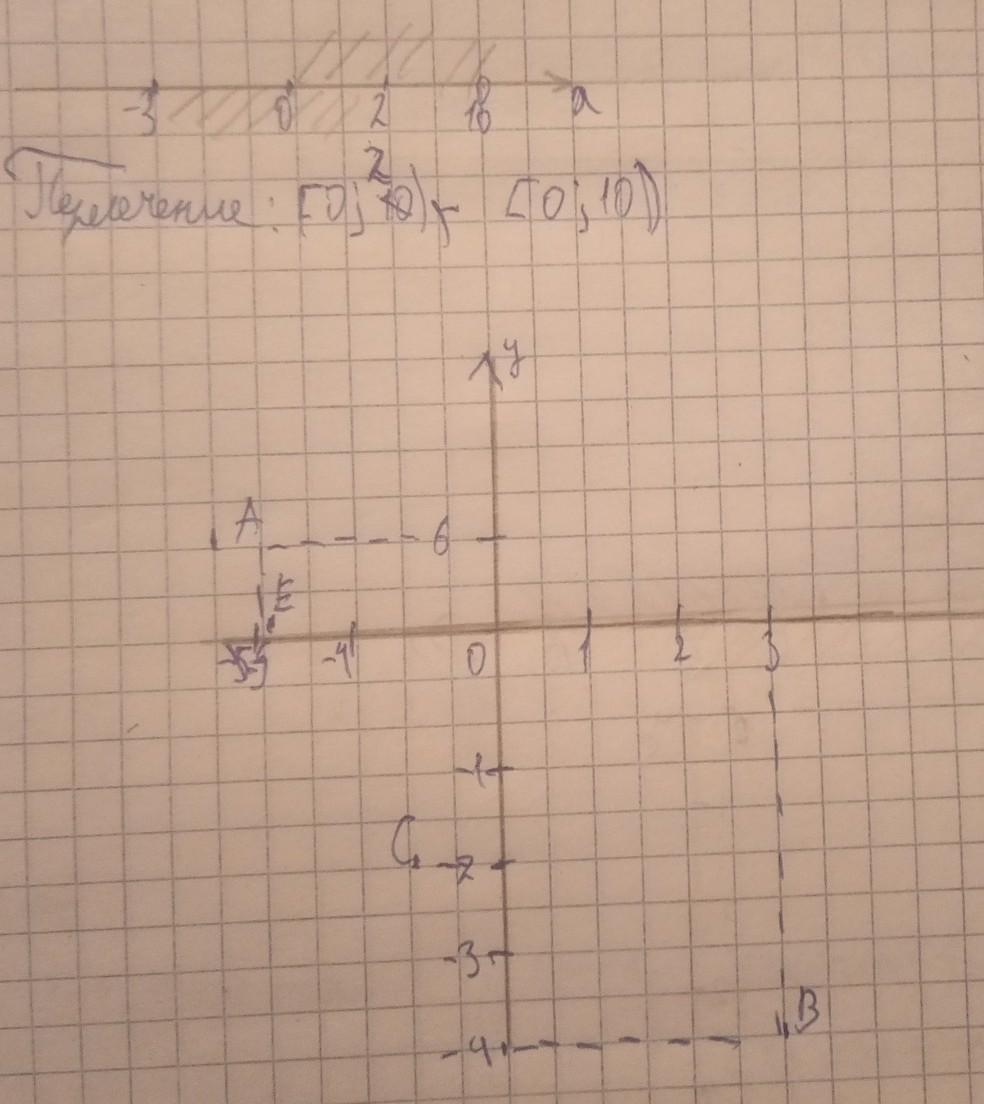 -3 0 2 10 a
2
Пересечение: [0; 10) [0; 10)
y
A 6
E
-5 -5 -4 0 1 2 3
-1
C -2
-3
B
-4